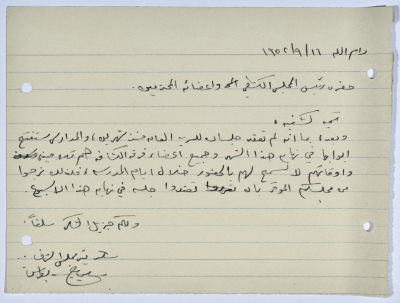 رام الله ١٩٥٢/٩/١٦
حضرة رئيس المجلس الكشفي واعضائه المحترمين.
تحية كشفية،
وبعد، بما انه لم تعقد جلسات منذ شهرين، والمدارس ستفتح
ابوابها في نهاية هذا الشهر وجميع اعضاء فرقة الكشافة هم
واوقاتهم لا تسمح لهم بالحضور خلال ايام المدرسة، لذلك نرجوا
من مجلسكم الموقر بان تعقدوا جلسة في نهاية هذا الاسبوع.
ولكم جزيل الشكر سلفاً.